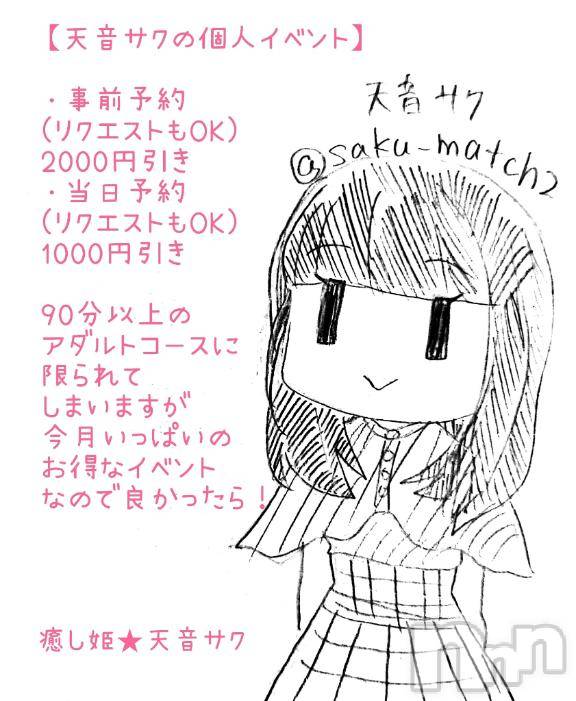 【天音サクの個人イベント】
・事前予約
(リクエストもOK)
2000円引き
・当日予約
(リクエストもOK)
1000円引き
90分以上の
アダルトコースに
限られて
しまいますが
今月いっぱいの
お得なイベント
なので良かったら！
癒し姫★天音サク
天音サク
@saku_match2
nnn